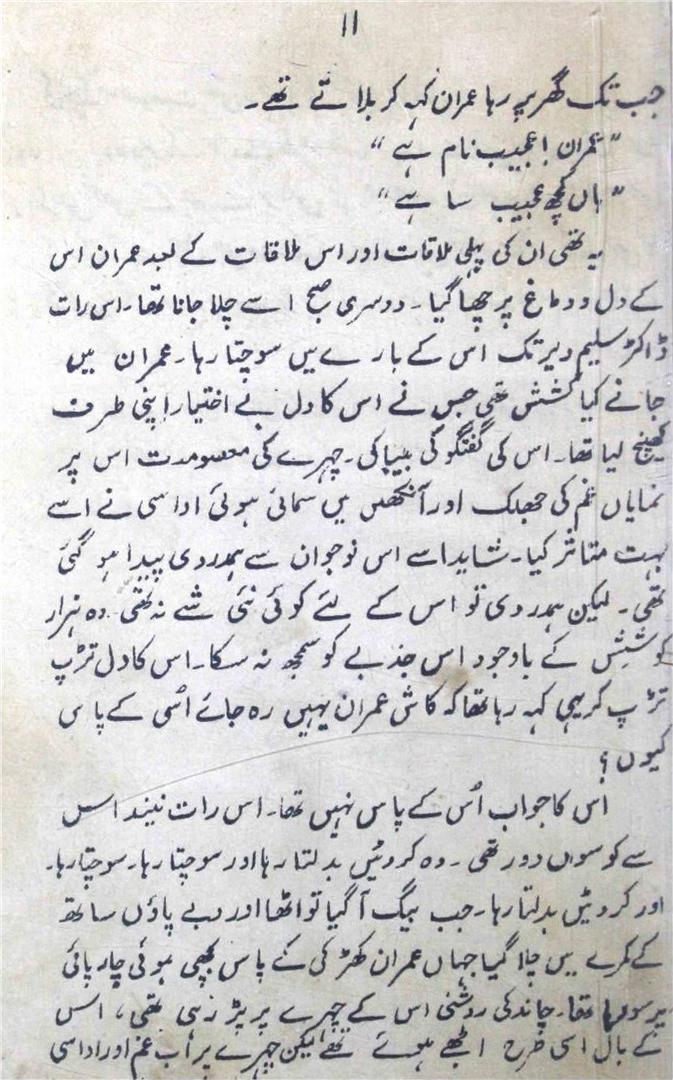 11
جب تک گھر پر رہا عمران کہہ کر بلاتے تھے۔
"عمران! عجیب نام ہے"
"ہاں کچھ عجیب سا ہے"
یہ تھی ان کی پہلی ملاقات اور اس ملاقات کے بعد عمران اس
کے دل و دماغ پر چھا گیا۔ دوسری صبح اسے چلا جانا تھا۔ اس رات
ڈاکٹر سلیم دیر تک اس کے بارے میں سوچتا رہا۔ عمران میں
جانے کیا کشش تھی جس نے اس کا دل بے اختیار اپنی طرف
کھینچ لیا تھا۔ اس کی گفتگو کی بیباکی۔ چہرے کی معصومیت اس پر
نمایاں غم کی جھلک اور آنکھوں میں سمائی ہوئی اداسی نے اسے
بہت متاثر کیا۔ شاید اسے اس نوجوان سے ہمدردی پیدا ہو گئی
تھی۔ لیکن ہمدردی تو اس کے لئے کوئی نئی شے نہ تھی وہ ہزار
کوشش کے باوجود اس جذبے کو سمجھ نہ سکا۔ اس کا دل تڑپ
تڑپ کر یہی کہہ رہا تھا کہ کاش عمران یہیں رہ جائے اُسی کے پاس
کیوں؟
اس کا جواب اُس کے پاس نہیں تھا۔ اس رات نیند اس
سے کوسوں دور تھی۔ وہ کروٹیں بدلتا رہا اور سوچتا رہا۔ سوچتا رہا۔
اور کروٹیں بدلتا رہا۔ جب تنگ آ گیا تو اٹھا اور دبے پاؤں ساتھ
کے کمرے میں چلا گیا جہاں عمران کھڑکی کے پاس بچھی ہوئی چارپائی
پر سو رہا تھا۔ چاند کی روشنی اس کے چہرے پر پڑ رہی تھی، اس
کے بال اسی طرح الجھے ہوئے تھے لیکن چہرے پر اب غم اور اداسی